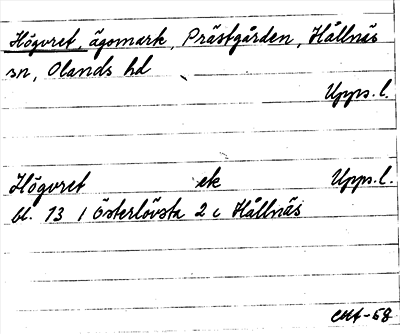 Högvret, ägomark, Prästgården, Hållnäs
sn, Olands hd
Upps. l.
Högvret ek Upps. l.
bl. 13 1 Österlövsta 2 c Hållnäs
-58